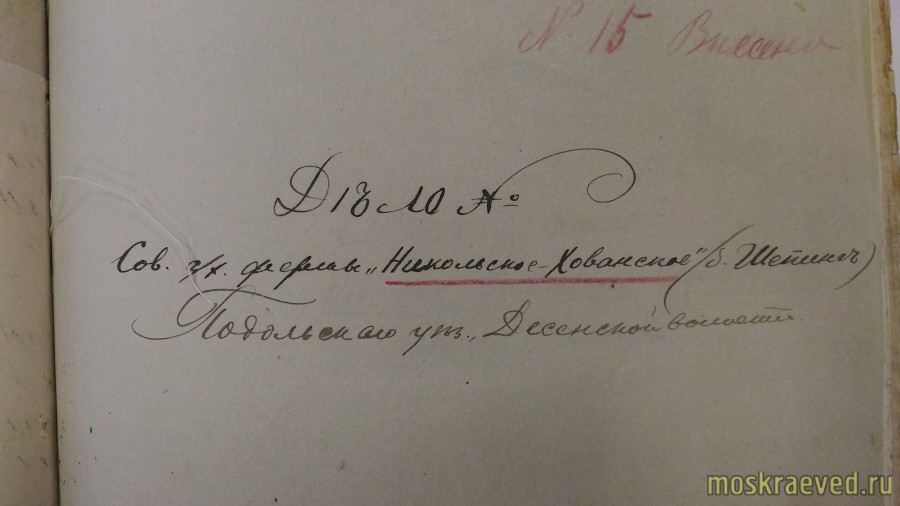 № 15
Дѣло №
Сов. с/х. фермы „Никольское-Хованское" (б. Шепинъ)
Подольскаго уѣз., Десенской волости.
moskraeved.ru